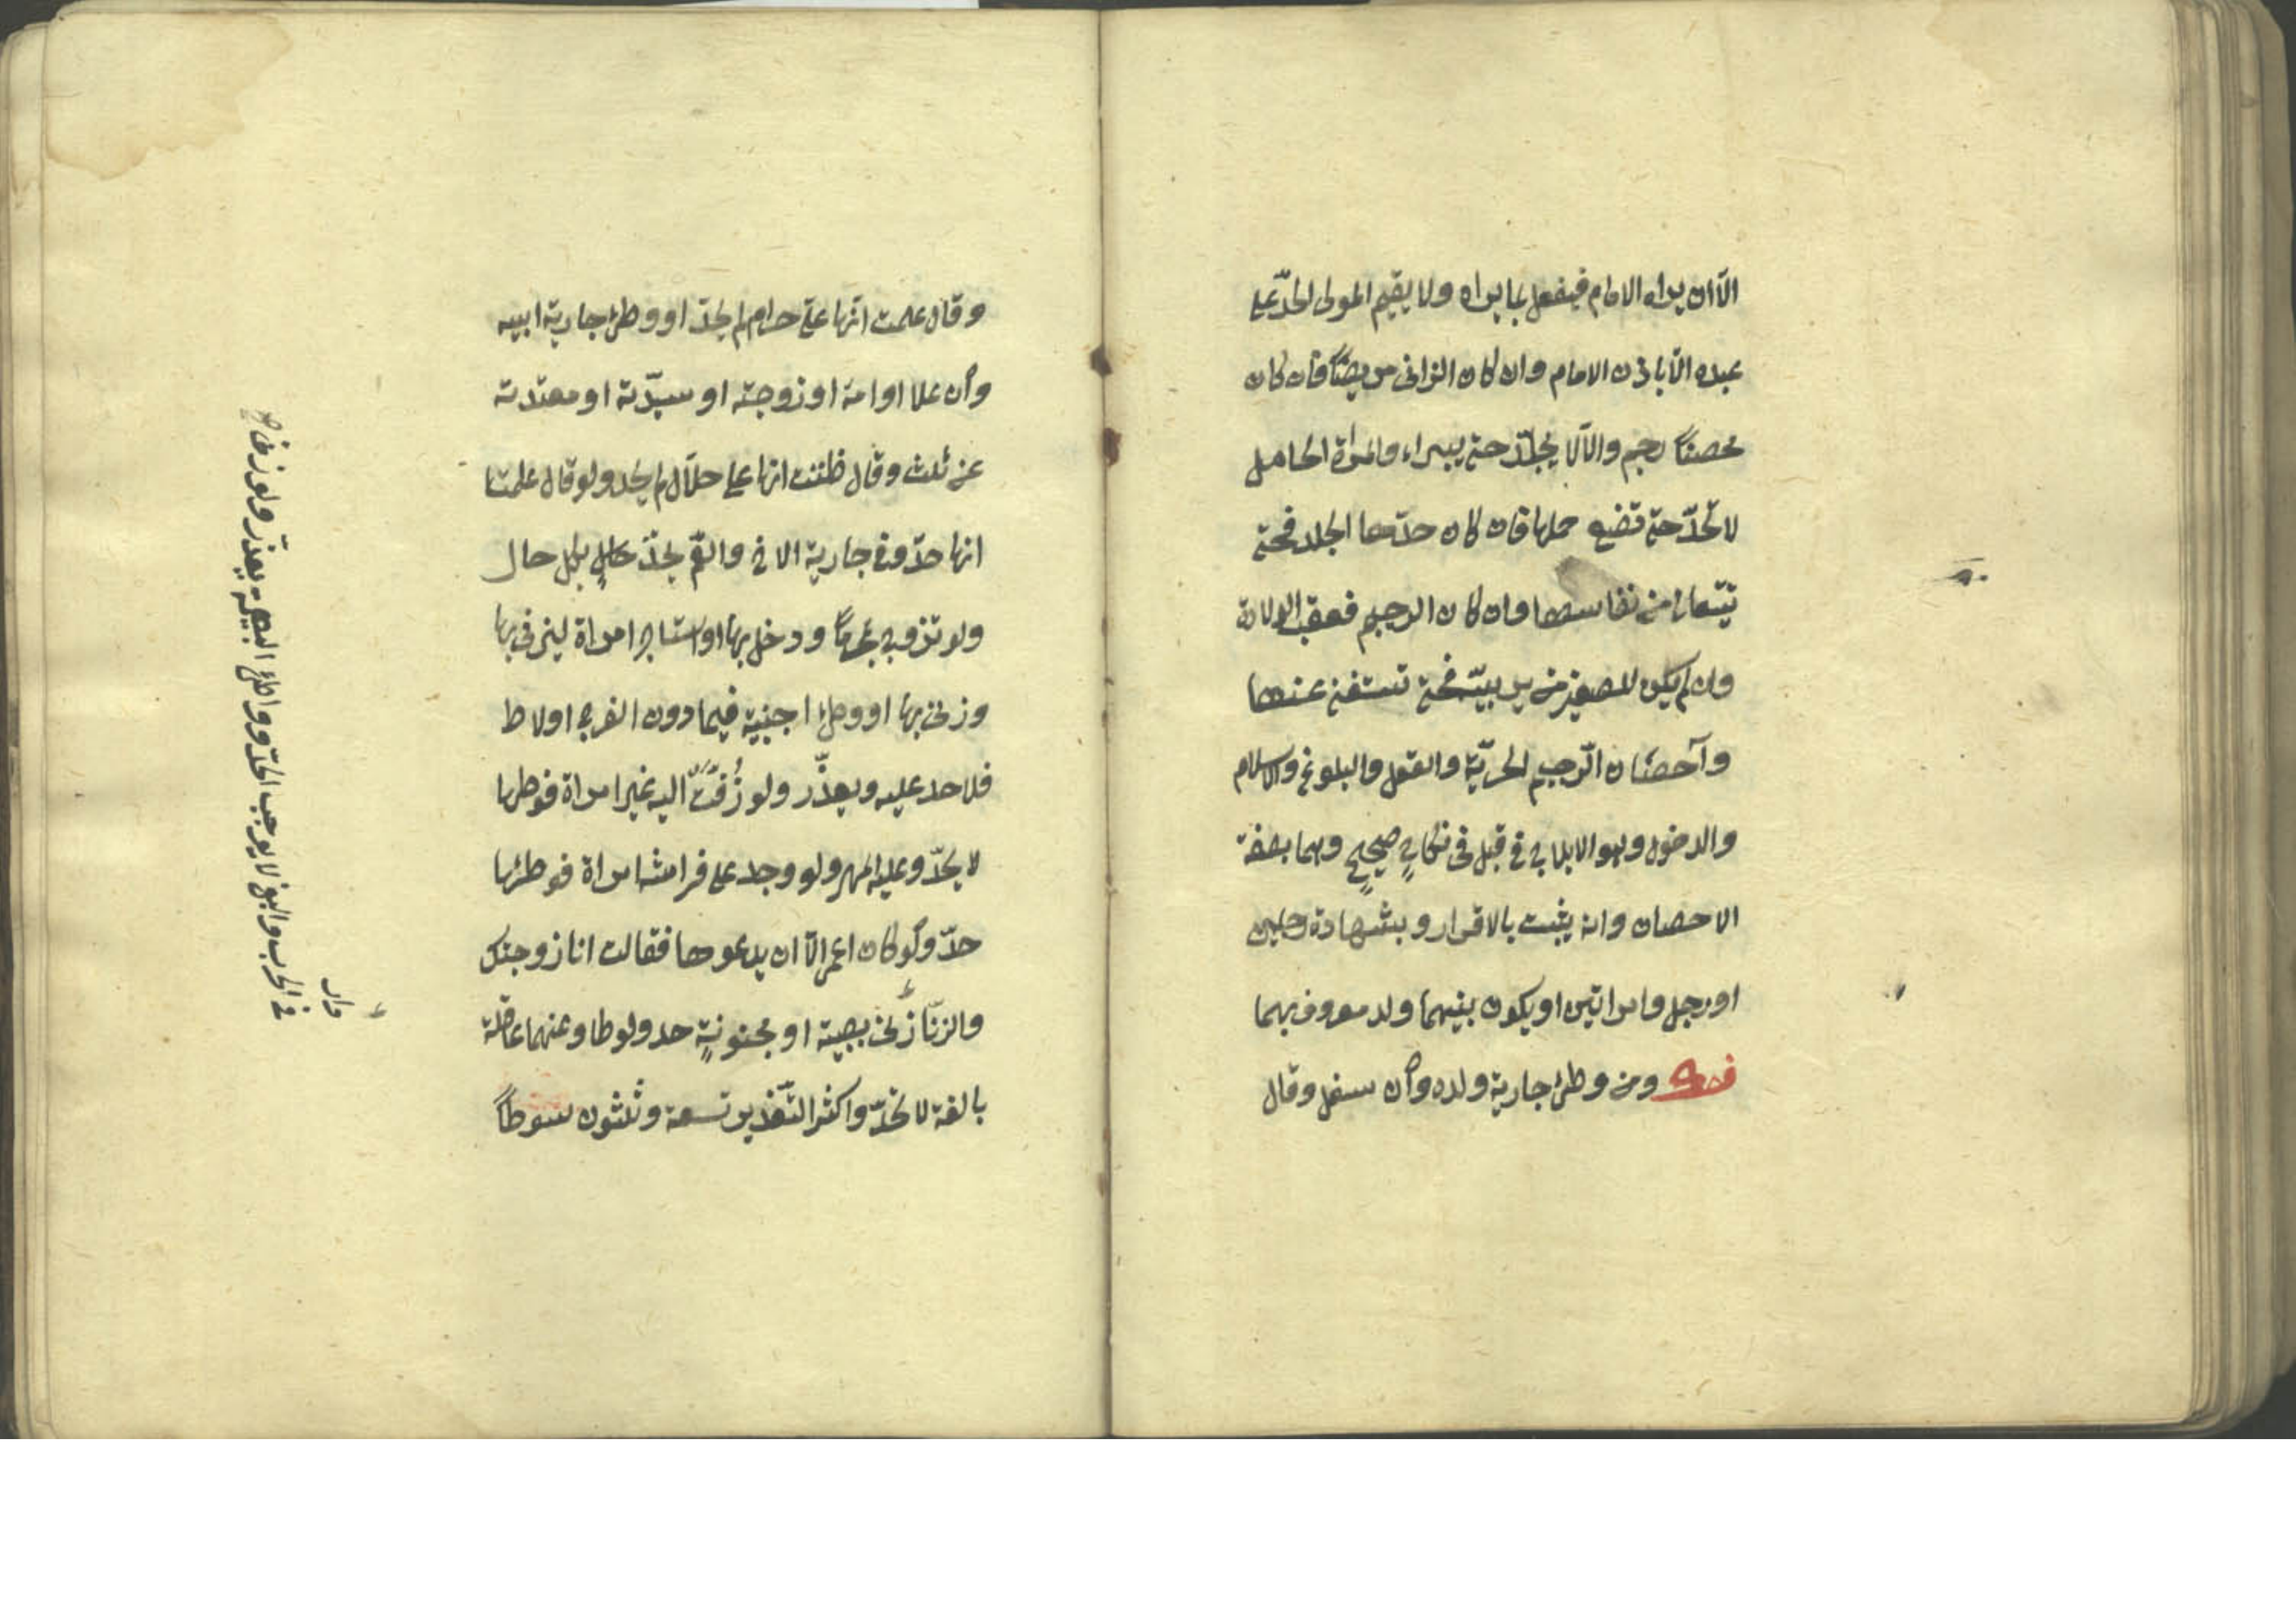 الّا ان يراه الامام فيفعل بما يراه ولا يقيم المولى الحدّ على
عبده الّا باذن الامام وان كان الزانى مريضًا فان كان
محصنًا رجم والّا لا يجلّد حتى يبراء والمراة الحامل
لا تحدّ حتى تضع حملها فان كان حدّها الجلد فحتى
تتعالى من نفاسها وان كان الرجم فعقب الولادة
وان لم يكن للصغير من يربيّه فحتى تستغنى عنها
واحصان الرّجم الحرّيّة والعقل والبلوغ والاسلام
والدخول وهو الايلاج فى قبل فى نكاحٍ صحيحٍ وهما بصفة
الاحصان وانه يثبت بالاقرار وبشهادة رجلين
او رجل وامراتين او يكون بينهما ولد معروف بهما
فصل ومن وطئ جارية ولده وان سفل وقال
وقال علمت انّها علىّ حرام لم يحدّ او وطئ جارية ابيه
وان علا او امه او زوجته او سيدّته او معتدته
عن ثلث وقال ظننت انها على حلال لم يحد ولو قال علمت
انها حدّ وفى جارية الاخ والعّم يحدّ على بكل حال
ولو تزوج محرمًا ودخل بها او استاجر امراة ليزنى بها
وزنى بها او وطئ اجنبية فيما دون الفرج او لاط
فلا حد عليه ويعذّر ولو زُفّت اليه غير امراة فوطها
لا يحدّ وعليه المهر ولو وجد على فراشه امراة فوطئها
حدّ ولو كان اعمى الّا ان يدعوها فقالت انا زوجتك
والزنا زنى بصبية او مجنونةٍ حد ولو طاوعتهما عاقلة
بالغة لا تحدّ واكثر التّعذير تسعة وثلثون سوطًا
ووطئ البهيمة يعذّر ولو زنى فى
دار
فى الحرب والبغى لا يوجب الحدّ